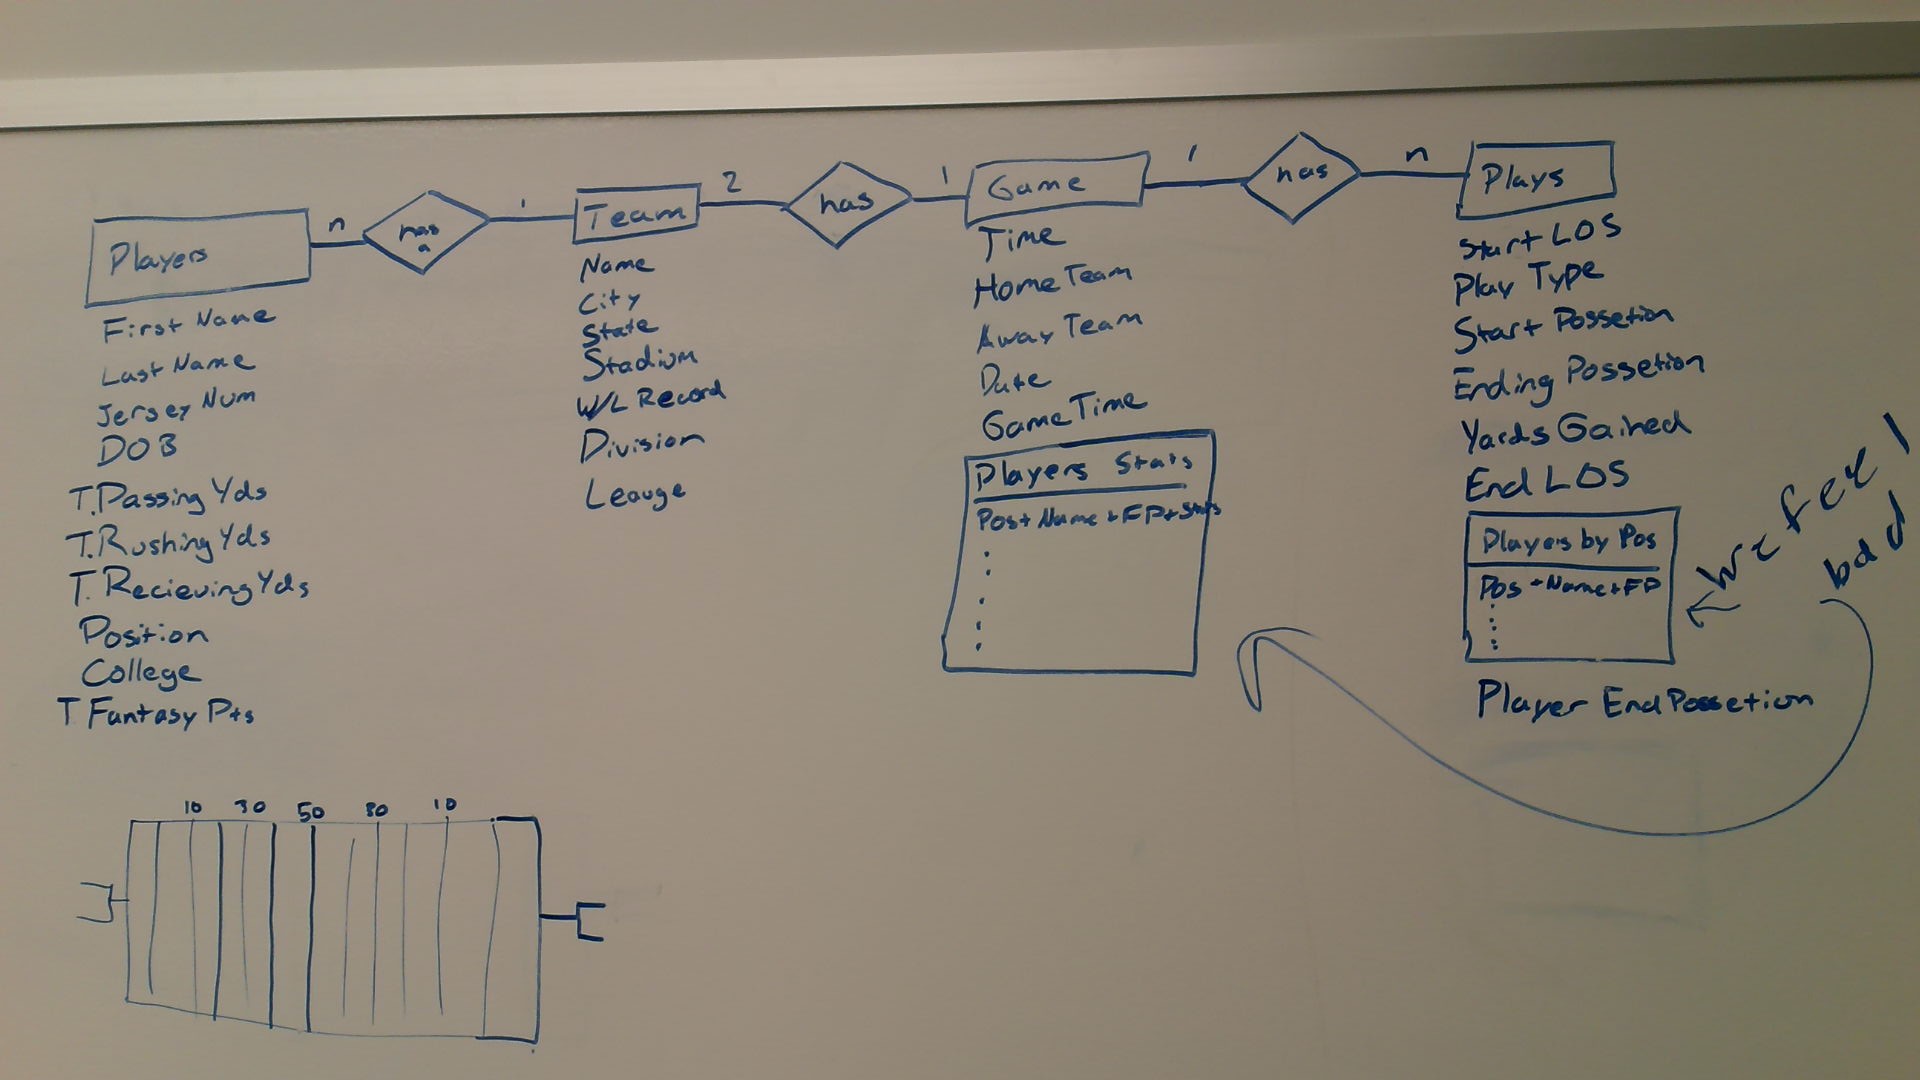 Players
n
has
a
1
Team
2
has
1
Game
1
has
n
Plays
First Name
Last Name
Jersey Num
DOB
T.Passing Yds
T.Rushing Yds
T.Recieving Yds
Position
College
T Fantasy Pts
Name
City
State
Stadium
W/L Record
Division
Leauge
Time
Home Team
Away Team
Date
Game Time
Players Stats
Pos + Name + FP + Stats
Start LOS
Play Type
Start Possetion
Ending Possetion
Yards Gained
End LOS
Players by Pos
Pos + Name + FP
Player End Possetion
we feel
bad
10 30 50 30 10